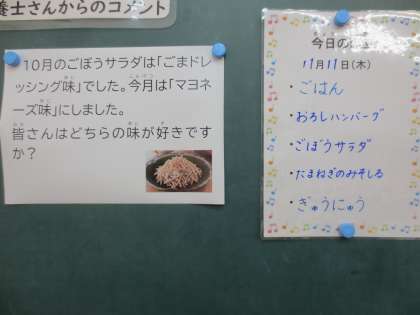 養士さんからのコメント
10月のごぼうサラダは「ごまドレ
ッシング味」でした。今月は「マヨネ
ーズ味」にしました。
皆さんはどちらの味が好きです
か？
今日の
11月11日(木)
・ごはん
・おろしハンバーグ
・ごぼうサラダ
・たまねぎのみそしる
・ぎゅうにゅう